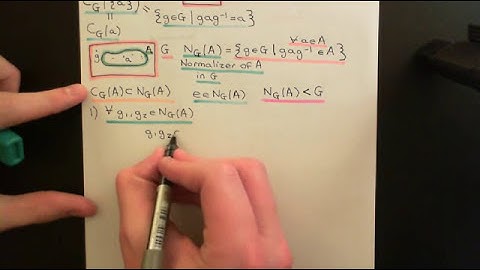 C_G({a}) = {g∈G | gag⁻¹=a}
||
C_G(a)
g · a A G N_G(A) = {g∈G | gag⁻¹∈A} ∀a∈A
Normalizer of A
in G
C_G(A)⊂N_G(A) e∈N_G(A) N_G(A) < G
1) ∀ g₁,g₂∈N_G(A)
g₁g₂